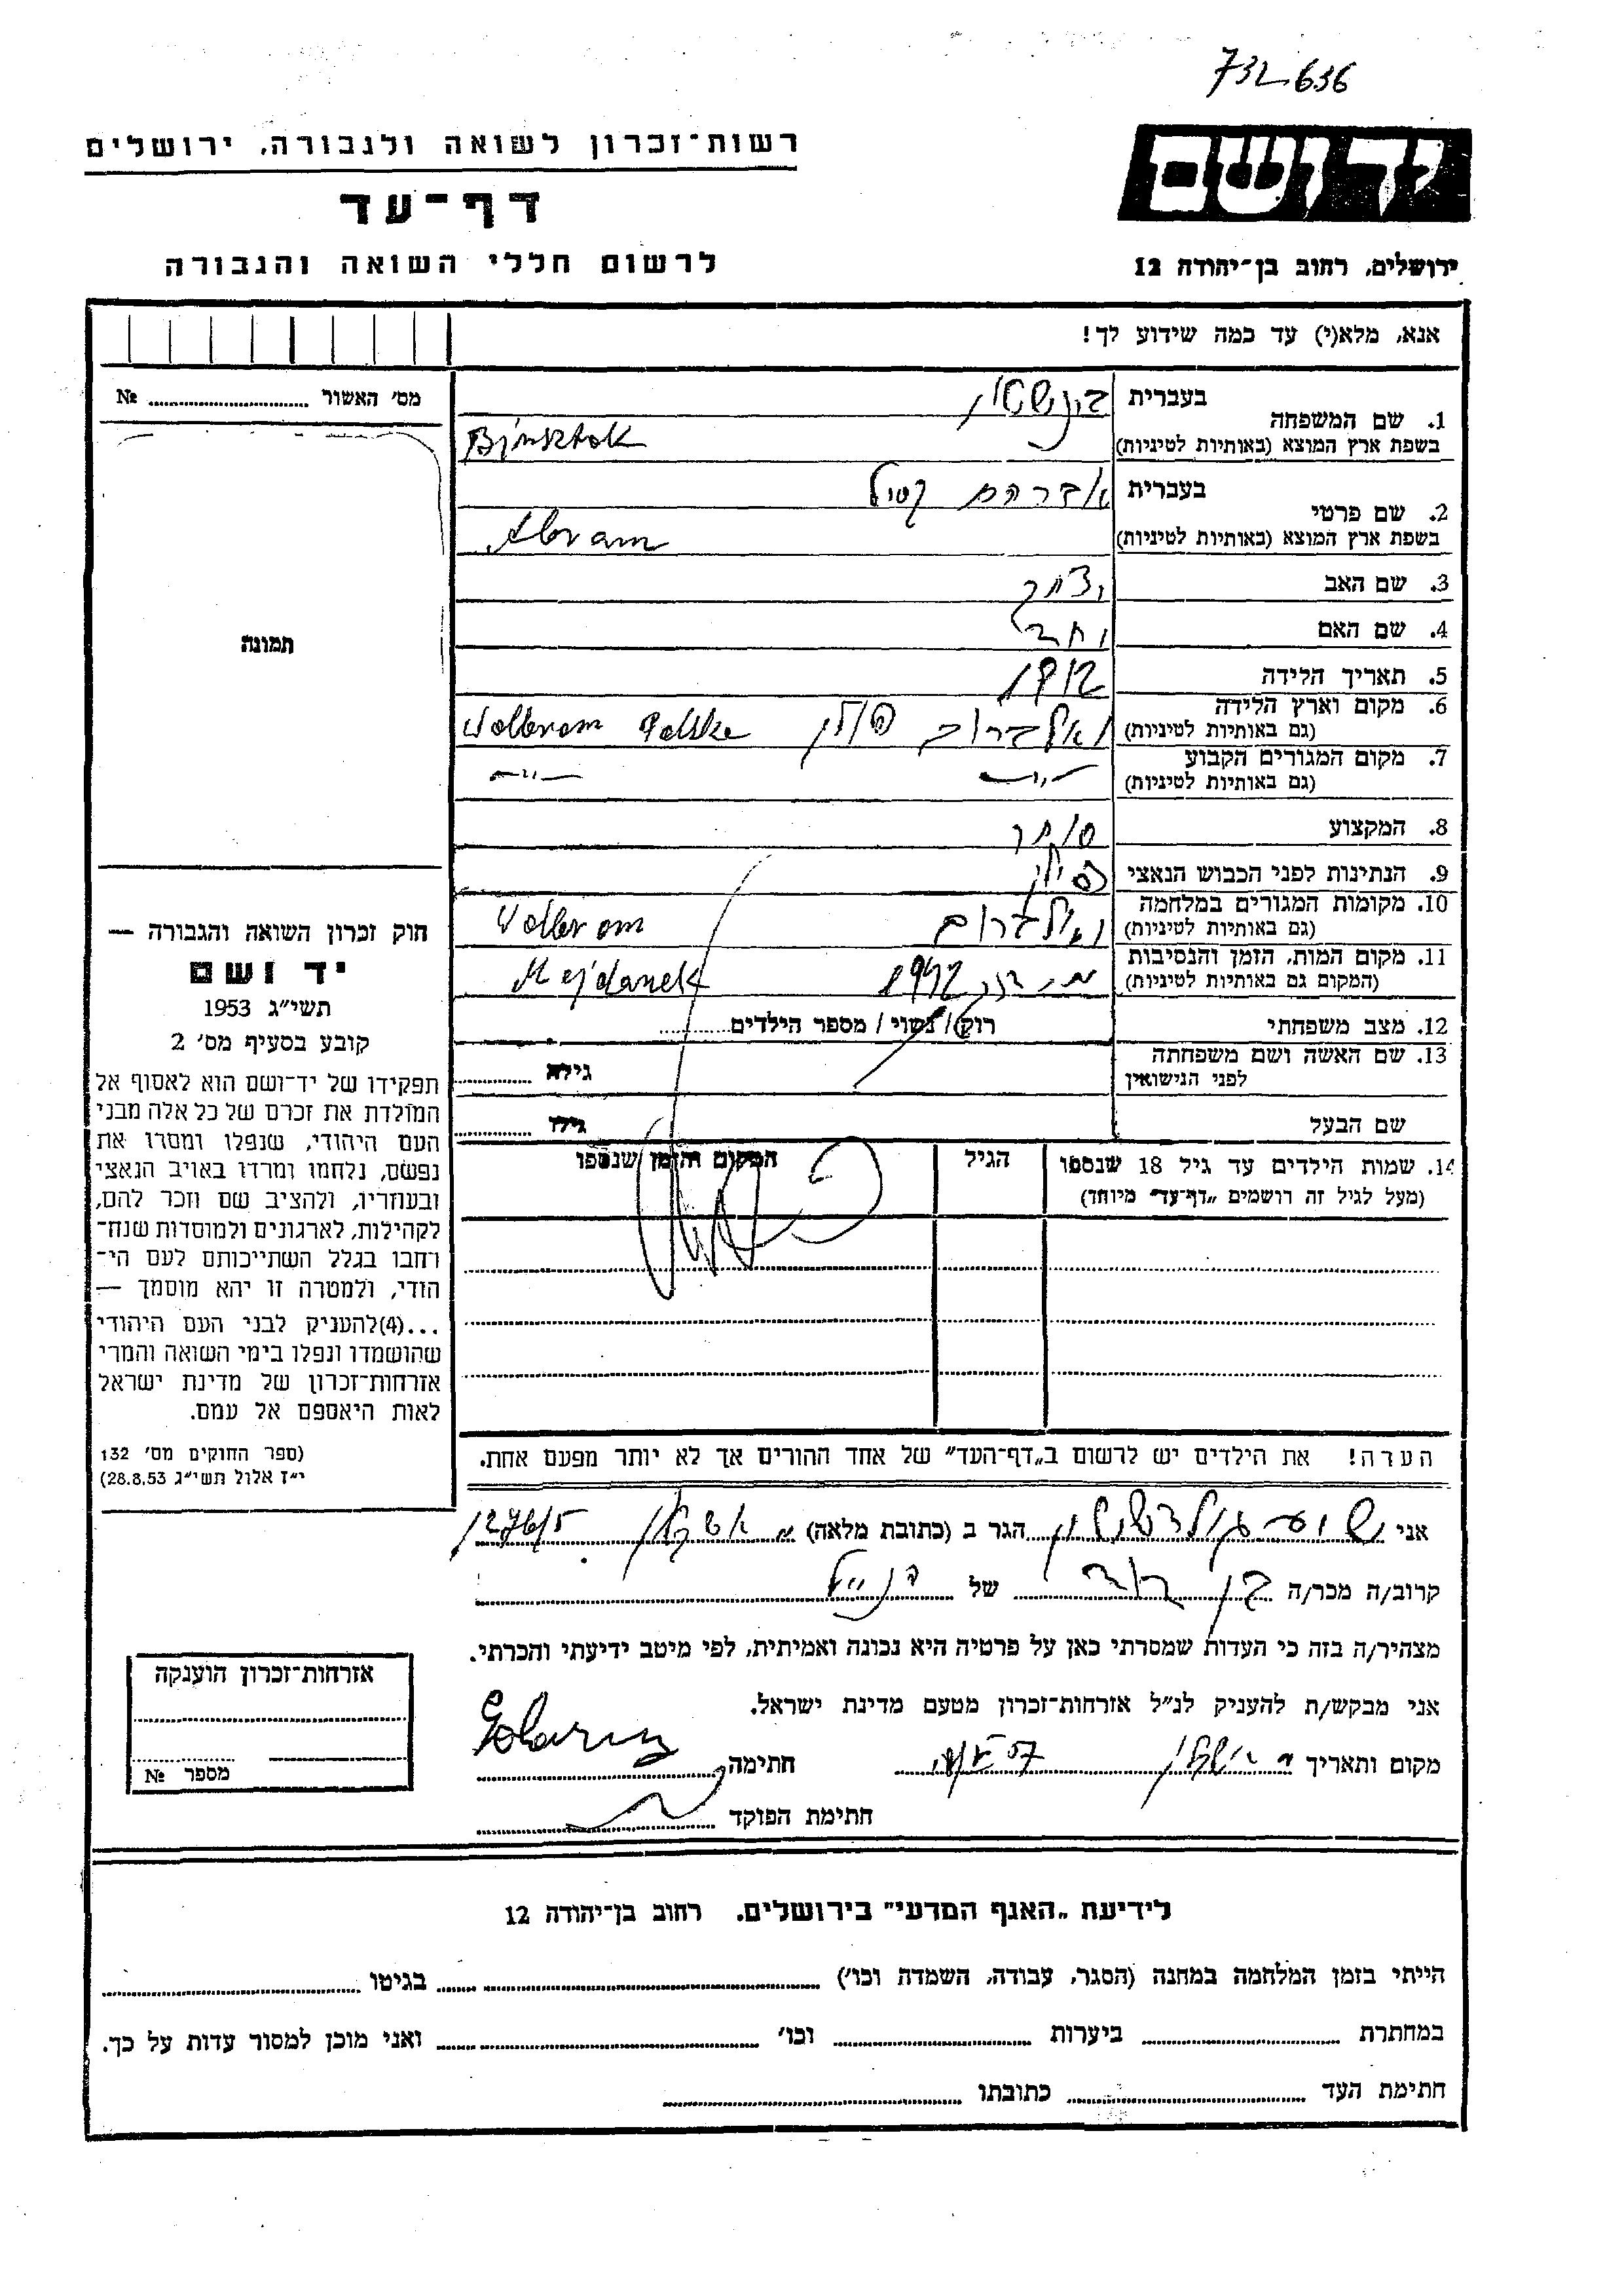 732636
רשות־זכרון לשואה ולגבורה, ירושלים
יד ושם
דף־עד
לרשום חללי השואה והגבורה
ירושלים, רחוב בן־יהודה 12
אנא, מלא(י) עד כמה שידוע לך!
מס׳ האשור № 
1. שם המשפחה בעברית
בשפת ארץ המוצא (באותיות לטיניות) Bjnsztok
2. שם פרטי בעברית אברהם
בשפת ארץ המוצא (באותיות לטיניות) Abram
3. שם האב יצחק
4. שם האם
5. תאריך הלידה 1912
6. מקום וארץ הלידה (גם באותיות לטיניות) וואלברום פולין Wolbrom Polska
7. מקום המגורים הקבוע (גם באותיות לטיניות) —״— —״—
8. המקצוע סוחר
9. הנתינות לפני הכבוש הנאצי פולין
10. מקומות המגורים במלחמה (גם באותיות לטיניות) וואלברום Volbrom
11. מקום המות, הזמן והנסיבות (המקום גם באותיות לטיניות) 1942 Majdanek
12. מצב משפחתי רוק/נשוי/מספר הילדים
13. שם האשה ושם משפחתה לפני הנישואין גילה
שם הבעל גילו
14. שמות הילדים עד גיל 18 שנספו (מעל לגיל זה רושמים „דף־עד״ מיוחד) הגיל המקום והזמן שנספו
תמונה
חוק זכרון השואה והגבורה —
יד ושם
תשי״ג 1953
קובע בסעיף מס׳ 2
תפקידו של יד־ושם הוא לאסוף אל
המולדת את זכרם של כל אלה מבני
העם היהודי, שנפלו ומסרו את
נפשם, נלחמו ומרדו באויב הנאצי
ובעוזריו, ולהציב שם וזכר להם,
לקהילות, לארגונים ולמוסדות שנח־
רחבו בגלל השתייכותם לעם הי־
הודי, ולמטרה זו יהא מוסמך —
...(4)להעניק לבני העם היהודי
שהושמדו ונפלו בימי השואה והמרי
אזרחות־זכרון של מדינת ישראל
לאות היאספם אל עמם.
(ספר החוקים מס׳ 132
י״ז אלול תשי״ג 28.8.53)
הערה! את הילדים יש לרשום ב„דף־העד״ של אחד ההורים אך לא יותר מפעם אחת.
אני הגר ב (כתובת מלאה) אשקלון 1276/5
קרוב/ה מכר/ה בן דוד של הנ״ל
מצהיר/ה בזה כי העדות שמסרתי כאן על פרטיה היא נכונה ואמיתית, לפי מיטב ידיעתי והכרתי.
אני מבקש/ת להעניק לנ״ל אזרחות־זכרון מטעם מדינת ישראל.
מקום ותאריך אשקלון חתימה
חתימת הפוקד
אזרחות־זכרון הוענקה
מספר №
לידיעת „האגף המדעי״ בירושלים. רחוב בן־יהודה 12
הייתי בזמן המלחמה במחנה (הסגר, עבודה, השמדה וכו׳) בגיטו
במחתרת ביערות וכו׳ ואני מוכן למסור עדות על כך.
חתימת העד כתובתו